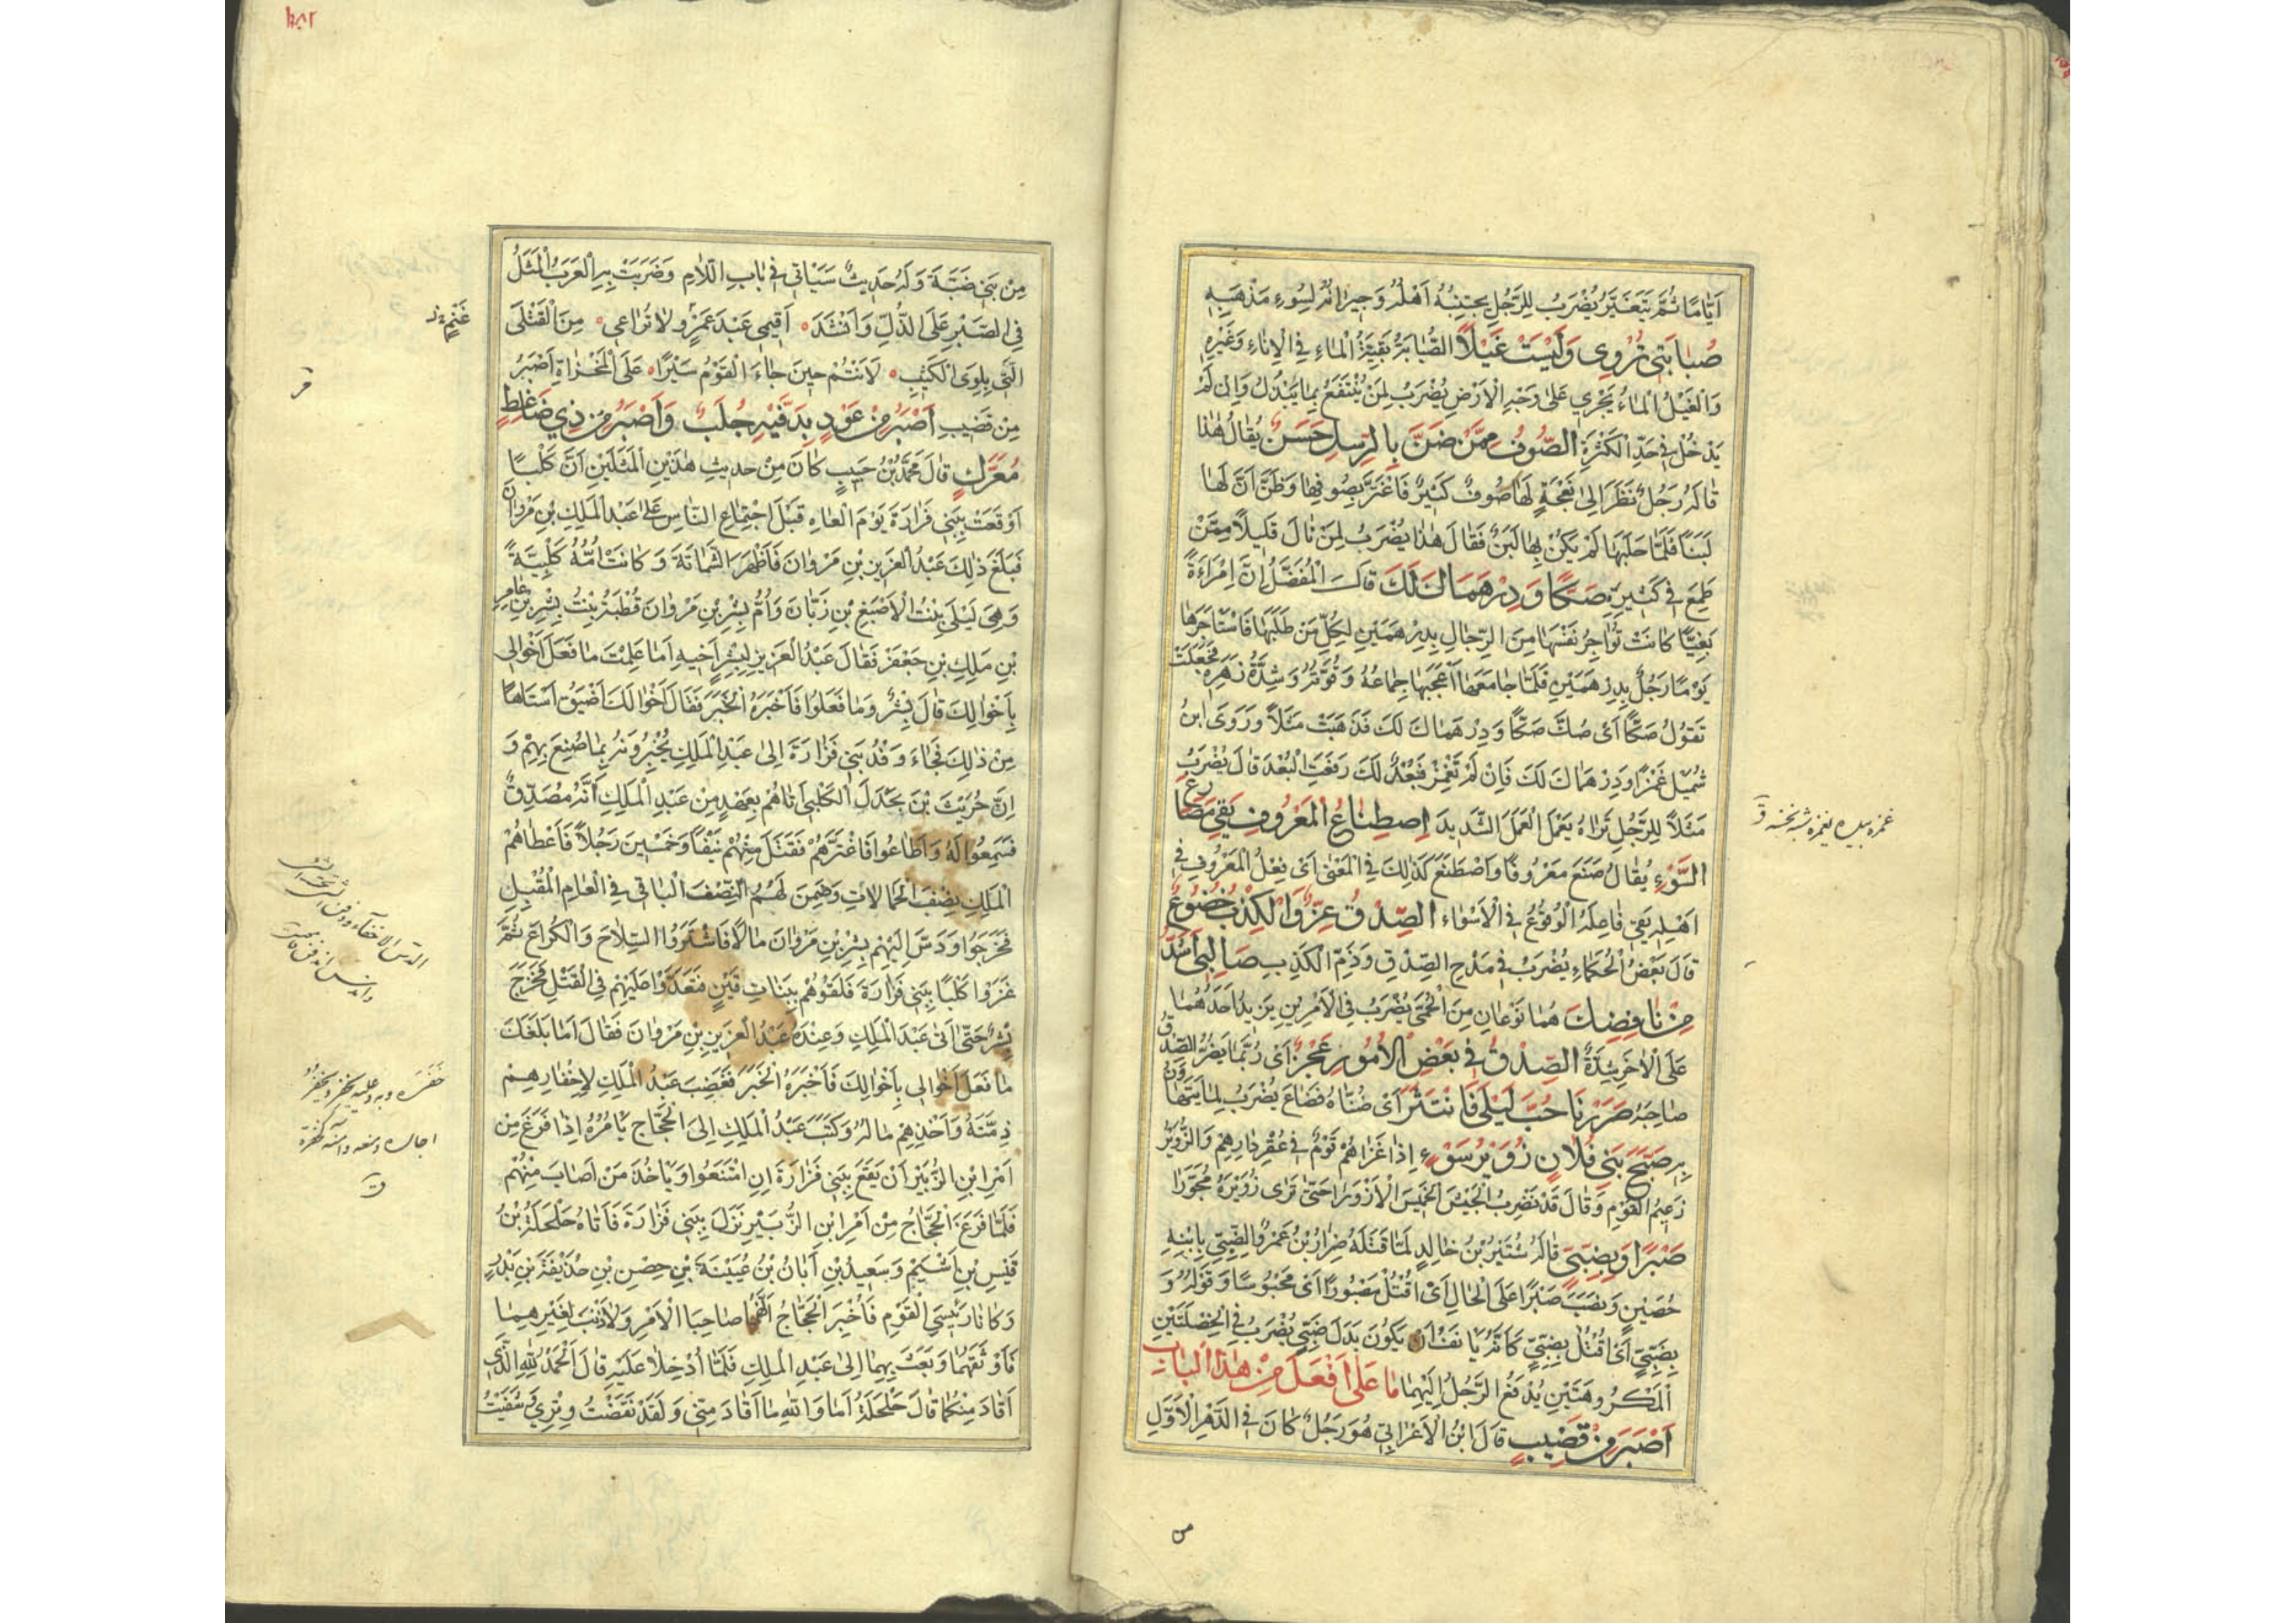 اَيَّامًا ثُمَّ يَتَغَيَّرُ يُضْرَبُ لِلرَّجُلِ يجتنبُهُ اَهْلُهُ وَجِيرانُهُ لِسُوءِ مَذْهَبِهِ
صُبابَتى تُرْوِى وَلَيْسَتْ غَيْلاً الصُّبابَةُ بَقِيَّةُ الْماءِ فِى الْاِناءِ وَغَيْرِهِ
وَالْغَيْلُ الْماءُ يَجْرِي عَلىٰ وَجْهِ الْاَرْضِ يُضْرَبُ لِمَنْ يَنْتَفِعُ بِما يَبْذُلُ وَاِنْ لَمْ
يَدْخُلْ فى حَدِّ الْكَثْرَةِ الصُّوفُ مِمَّنْ ضَنَّ بِالرِّسْلِ حَسَنٌ يُقالُ هٰذا
قالَهُ رَجُلٌ نَظَرَ اِلىٰ نَعْجَةٍ لَهٰا صُوفٌ كَثيرٌ فَاغْتَرَّ بِصُوفِهٰا وَظَنَّ اَنَّ لَهٰا
لَبَنًا فَلَمّا حَلَبَها لَمْ يَكُنْ بِهٰا لَبَنٌ فَقٰالَ هٰذا يُضْرَبُ لِمَنْ نالَ قَليلاً مِمَّنْ
طَمِعَ فى كَثيرِهِ صَكًّا وَدِرْهَمَاكَ لَكَ قالَ الْمُفَضَّلُ اِنَّ اِمْرَاَةً
بَغِيًّا كانَتْ تُؤاجِرُ نَفْسَها مِنَ الرِّجالِ بِدِرْهَمَيْنِ لِكُلِّ مَنْ طَلَبَها فَاسْتَاْجَرَها
يَوْمًا رَجُلٌ بِدِرْهَمَيْنِ فَلَمّا جامَعَها اَعْجَبَها جِماعُهُ وَقُوَّتُهُ وَشِدَّةُ نَهَزِهِ فَجَعَلَتْ
تَقُولُ صَكًّا اَىْ صُكَّ صَكًّا وَدِرْهَماكَ لَكَ فَذَهَبَتْ مَثَلاً وَرَوَى ابنُ
شُمَيْلٍ غَمْزًا وَدِرْهَماكَ لَكَ فَاِنْ لَمْ تَغْمِزْ فَبُعْدٌ لَكَ رَفَعْتُ الْبُعْدَ قالَ يُضْرَبُ
مَثَلاً لِلرَّجُلِ تَراهُ يَعْمَلُ الْعَمَلَ الشَّديدَ اِصْطِناعُ الْمَعْرُوفِ يَقِى مَصٰارِعَ
السَّوْءِ يُقٰالُ صَنَعَ مَعْرُوفًا وَاصْطَنَعَ كَذٰلِكَ فِى الْمَعْنىٰ اَىْ فِعْلُ الْمَعْرُوفِ فى
اَهْلِهِ يَقى فاعِلَهُ الْوُقُوعَ فِى الْاَسْواءِ الصِّدْقُ عِزٌّ وَالْكِذْبُ خُضُوعٌ
قالَ بَعْضُ الْحُكَماءِ يُضْرَبُ فى مَدْحِ الصِّدْقِ وَذَمِّ الْكَذِبِ صَالِبى اَشَدُّ
مِنْ نافِضِكَ هُما نَوْعانِ مِنَ الْحُمّى يُضْرَبُ فِى الْاَمْرَيْنِ يَزيدُ اَحَدُهُما
عَلَى الْاٰخَرِ شِدَّةً الصِّدْقُ فى بَعْضِ الْاُمُورِ عَجْزٌ اَىْ رُبَّما يَضُرُّ الصِّدْقُ
صاحِبَهُ صَرَرْنَا حُبَّ لَيْلىٰ فَانْتَثَرَ اَىْ صُنّاهُ فَضاعَ يُضْرَبُ لِما يَتَهاوَنُ
بِهِ صَبَّحَ بَنى فُلانٍ زُوَيْرُ سَوْءٍ اِذا غَزاهُمْ قَوْمٌ فى عُقْرِ دارِهِمْ وَالزُّوَيْرُ
زَعيمُ الْقَوْمِ وَقالَ قَدْ نَضْرِبُ الْجَيْشَ الْخَميسَ الْاَزْوَرا حَتّىٰ تَرى زُوَيْرَهُ مُجَوَّرًا
صَبْرًا وَبِضَبِّىٍّ قالَهُ شُتَيْرُ بْنُ خالِدٍ لَمّا قَتَلَهُ ضِرارُ بْنُ عَمْرٍو الضَّبِّىُّ بِابْنِهِ
حُصَيْنٍ وَنَصَبَ صَبْرًا عَلَى الْحالِ اَىْ اُقْتَلُ مَصْبُورًا اَىْ مَحْبُوسًا وَقَوْلُهُ وَ
بِضَبِّىٍّ اَىْ اُقْتَلُ بِضَبِّىٍّ كَاَنَّهُ يَاْنَفُ اَنْ يَكُونَ بَدَلَ ضَبِّىٍّ يُضْرَبُ فِى الْخَصْلَتَيْنِ
الْمَكْرُوهَتَيْنِ يُدْفَعُ الرَّجُلُ اِلَيْهِما ما عَلىٰ اَفْعَلَ مِنْ هٰذَا الْبابِ
اَصْبَرُ مِنْ قَضيبٍ قالَ ابْنُ الْاَعْرابِىِّ هُوَ رَجُلٌ كانَ فِى الدَّهْرِ الْاَوَّلِ
من
مِنْ بَنى ضَبَّةَ وَلَهُ حَديثٌ سَيَاْتى فى بابِ اللّامِ وَضَرَبَتْ بِهِ الْعَرَبُ الْمَثَلَ
فِى الصَّبْرِ عَلَى الذُّلِّ وَاَنْشَدَ اَقيمى عَبْدَ عَمْرٍو لا تُراعى مِنَ الْقَتْلَى
غَنْمٍ
الَّتى بِلِوَى الْكَثيبِ لَاَنْتُمْ حينَ جاءَ الْقَوْمُ سَيْرًا عَلَى الْمَخْزاةِ اَصْبَرُ
مِنْ قَضيبِ اَصْبَرُ مِنْ عَوْدٍ بِدَفَّيْهِ جُلَبٌ وَاَصْبَرُ مِنْ ذى ضاغِطٍ
مُعَرَّكٍ قالَ مُحَمَّدُ بْنُ حَبيبٍ كانَ مِنْ حَديثِ هٰذَيْنِ الْمَثَلَيْنِ اَنَّ كَلْبًا
اَوْقَعَتْ بِبَنى فَزارَةَ يَوْمَ الْعاهِ قَبْلَ اجْتِماعِ النّاسِ عَلىٰ عَبْدِ الْمَلِكِ بْنِ مَرْوانَ
فَبَلَغَ ذٰلِكَ عَبْدَ الْعَزيزِ بْنِ مَرْوانَ فَاَظْهَرَ الشَّماتَةَ وَكانَتْ اُمُّهُ كَلْبِيَّةً
وَهِىَ لَيْلىٰ بِنْتُ الْاَصْبَغِ بْنِ زَبّانَ وَاُمُّ بِشْرِ بْنِ مَرْوانَ قُطْبَةُ بِنْتُ بِشْرِ بْنِ عامِرِ
بْنِ مٰلِكِ بْنِ جَعْفَرٍ فَقالَ عَبْدُ الْعَزيزِ لِبِشْرٍ اَخيهِ اَما عَلِمْتَ ما فَعَلَ اَخْوالى
بِاَخْوالِكَ قالَ بِشْرٌ وَما فَعَلُوا فَاَخْبَرَهُ الْخَبَرَ فَقالَ اَخْوالُكَ اَضْيَقُ اَسْتاهًا
مِنْ ذٰلِكَ فَجاءَ وَفْدُ بَنى فَزارَةَ اِلىٰ عَبْدِ الْمَلِكِ يُخْبِرُونَهُ بِما صُنِعَ بِهِمْ وَ
اِنَّ حُرَيْثَ بْنَ بَجْدَلَ الْكَلْبِىَّ اَتاهُمْ بِعَهْدٍ مِنْ عَبْدِ الْمَلِكِ اَنَّهُ مُصَدِّقٌ
فَسَمِعُوا لَهُ وَاَطاعُوا فَاغْتَرَّهُمْ فَقَتَلَ مِنْهُمْ نَيْفًا وَخَمْسينَ رَجُلاً فَاَعْطاهُمْ
الْمَلِكِ نِصْفَ الْحَمالاتِ وَضَمِنَ لَهُمُ النِّصْفَ الْباقى فِى الْعامِ الْمُقْبِلِ
فَخَرَجُوا وَدَسَّ اِلَيْهِمْ بِشْرُ بْنِ مَرْوانَ مالاً فَاشْتَرَوُا السِّلاحَ وَالْكُراعَ ثُمَّ
غَزَوْا كَلْبًا بِبَنى فَزارَةَ فَلَقُوهُمْ بِبَناتِ قَيْنٍ فَتَعَدَّوْا عَلَيْهِمْ فِى الْقَتْلِ فَخَرَجَ
بِشْرٌ حَتّىٰ اَتىٰ عَبْدَ الْمَلِكِ وَعِنْدَهُ عَبْدُ الْعَزيزِ بْنِ مَرْوانَ فَقالَ اَما بَلَغَكَ
ما فَعَلَ اَخْوالى بِاَخْوالِكَ فَاَخْبَرَهُ الْخَبَرَ فَغَضِبَ عَبْدُ الْمَلِكِ لِاِخْفارِهِمْ
ذِمَّتَهُ وَاَخْذِهِمْ مالَهُ وَكَتَبَ عَبْدُ الْمَلِكِ اِلَى الْحَجّاجِ يَاْمُرُهُ اِذا فَرَغَ مِنْ
اَمْرِ ابْنِ الزُّبَيْرِ اَنْ يَقَعَ بِبَنى فَزارَةَ اِنِ امْتَنَعُوا وَيَاْخُذَ مَنْ اَصابَ مِنْهُمْ
فَلَمّا فَرَغَ الْحَجّاجُ مِنْ اَمْرِ ابْنِ الزُّبَيْرِ نَزَلَ بِبَنى فَزارَةَ فَاَتاهُ حَلْحَلَةُ بْنُ
قَيْسِ بْنِ اَشْيَمَ وَسَعيدُ بْنِ اَبانُ بْنُ عُيَيْنَةَ بْنِ حِصْنِ بْنِ حُذَيْفَةَ بْنِ بَدْرٍ
وَكانا رَئيسَىِ الْقَوْمِ فَاُخْبِرَ الْحَجّاجُ اَنَّهُما صاحِبا الْاَمْرِ وَلا ذَنْبَ لِغَيْرِهِما
فَاَوْثَقَهُما وَبَعَثَ بِهِما اِلىٰ عَبْدِ الْمَلِكِ فَلَمّا اُدْخِلا عَلَيْهِ قالَ الْحَمْدُ لِلّٰهِ الَّذى
اَقادَ مِنْكُما قالَ حَلْحَلَةُ اَما وَاللّٰهِ ما اَقادَ مِنّى وَلَقَدْ نَقَضْتُ وِتْرى وَشَفَيْتُ